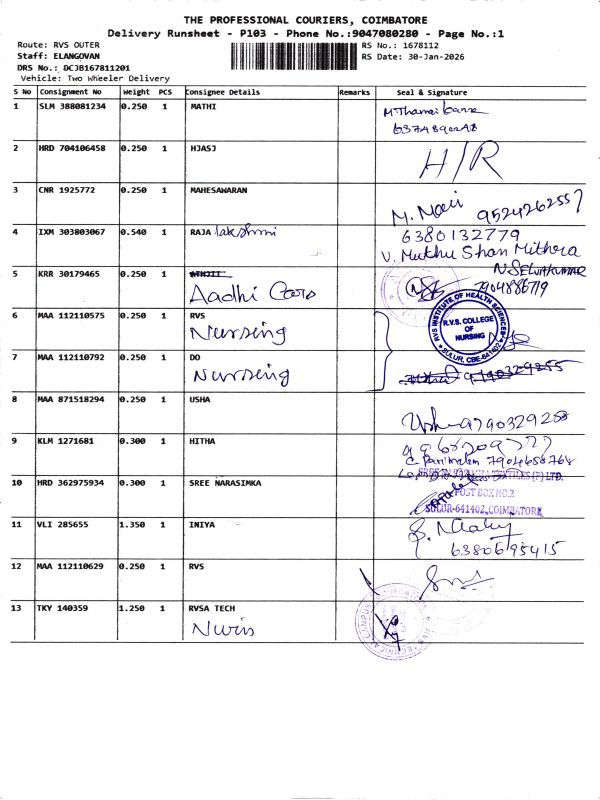 THE PROFESSIONAL COURIERS, COIMBATORE
Delivery Runsheet - P103 - Phone No.:9047080280 - Page No.:1
Route: RVS OUTER
RS No.: 1678112
Staff: ELANGOVAN
RS Date: 30-Jan-2026
DRS No.: DCJB167811201
Vehicle: Two Wheeler Delivery
S No Consignment No Weight PCS Consignee Details Remarks Seal & Signature
1 SLM 388081234 0.250 1 MATHI
2 HRD 704106458 0.250 1 HJASJ H/R
3 CNR 1925772 0.250 1 MAHESWARAN
M. Mari 9524262557
4 IXM 303803067 0.540 1 RAJA lakshmi 6380132779
V. Muthu Shan Mithera
5 KRR 30179465 0.250 1 N. SELVAKUMAR
Aadhi Cars 7904886719
6 MAA 112110575 0.250 1 RVS
Nursing
R.V.S. COLLEGE OF NURSING
RVS INSTITUTE OF HEALTH SCIENCES
SULUR, CBE-641402
7 MAA 112110792 0.250 1 DO
Nursing
8 MAA 871518294 0.250 1 USHA
Usha 9790329258
9 KLM 1271681 0.300 1 HITHA
C. Parimalam 7904658768
10 HRD 362975934 0.300 1 SREE NARASIMKA
(P) LTD.
POST BOX NO.2
SULUR-641402, COIMBATORE
11 VLI 285655 1.350 1 INIYA
6380695415
12 MAA 112110629 0.250 1 RVS
13 TKY 140359 1.250 1 RVSA TECH
RVS TECHNICAL CAMPUS